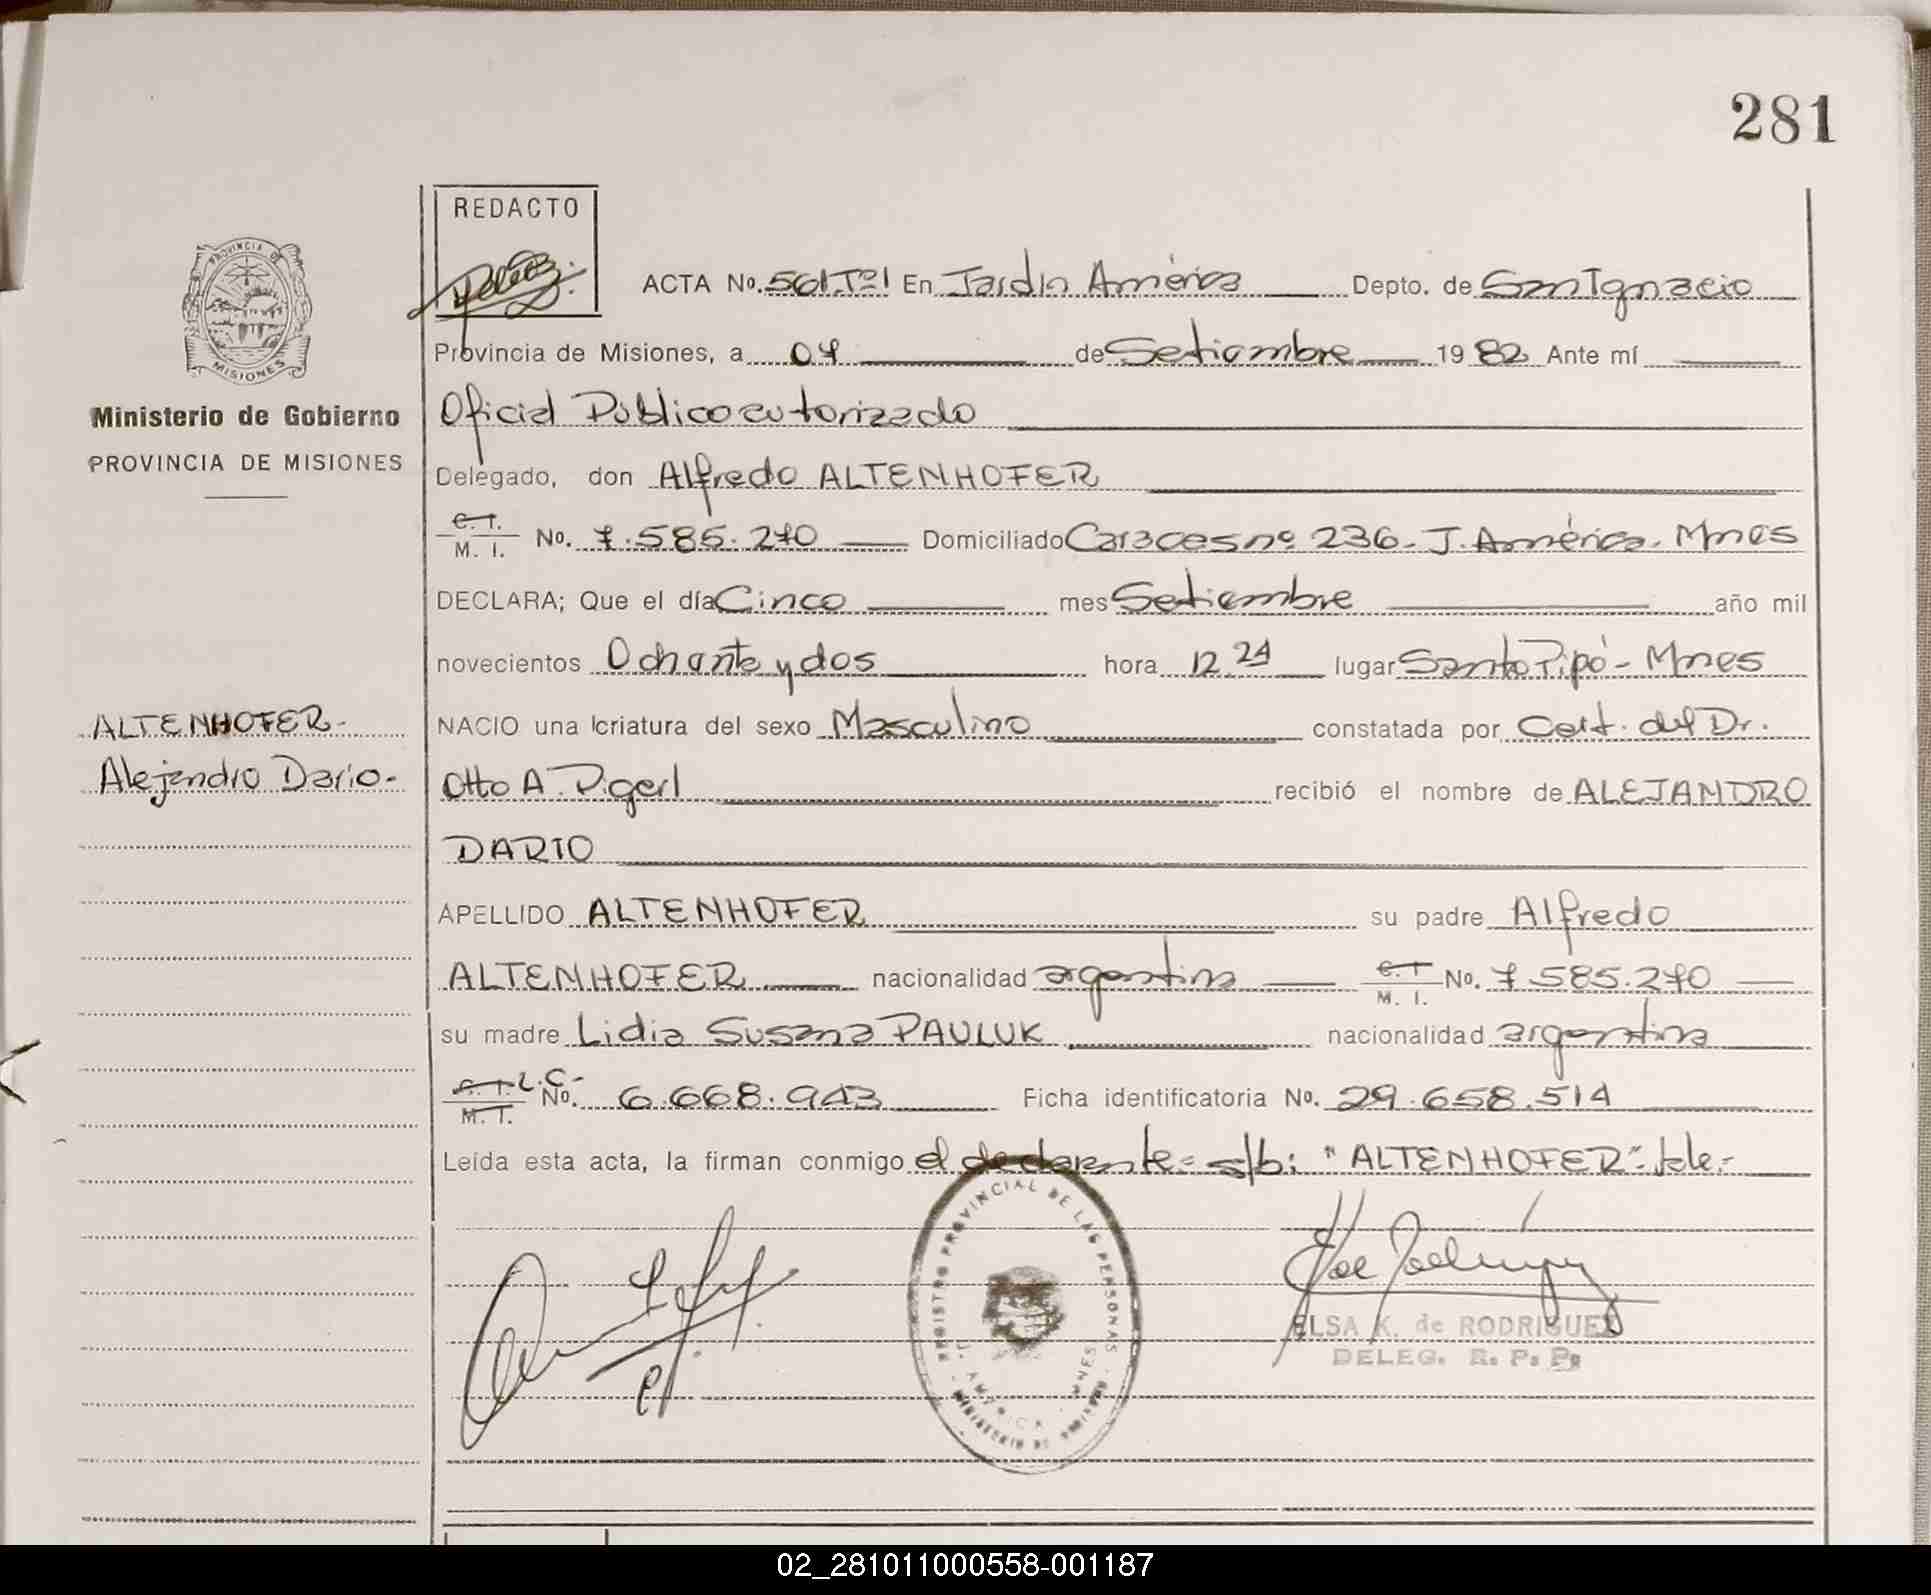 281
REDACTO
PROVINCIA DE
MISIONES
Ministerio de Gobierno
PROVINCIA DE MISIONES
ACTA No. 561.Tº1 En Jardín América Depto. de San Ignacio
Provincia de Misiones, a 04 de Setiembre 1982 Ante mí
Oficial Público autorizado
Delegado, don Alfredo ALTENHOFER
C.I. M. I. No. 7.585.270 Domiciliado Caracas nº 236- J. América- Mnes
DECLARA; Que el día Cinco mes Setiembre año mil
novecientos Ochenta y dos hora 12.24 lugar Santo Pipó- Mnes
ALTENHOFER-
Alejandro Dario-
NACIO una criatura del sexo Masculino constatada por Cert. del Dr.
Otto A. Pigerl recibió el nombre de ALEJANDRO
DARIO
APELLIDO ALTENHOFER su padre Alfredo
ALTENHOFER nacionalidad argentina C.I M. I. No. 7.585.270
su madre Lidia Susana PAULUK nacionalidad argentina
C.I. M.I. L.C- No. 6.668.943 Ficha identificatoria No. 29.658.514
Leída esta acta, la firman conmigo el declarante- s/b: "ALTENHOFER"- Vale.-
REGISTRO PROVINCIAL DE LAS PERSONAS
J. AMERICA - MNES
MINISTERIO DE GOBIERNO
ELSA K. de RODRIGUEZ
DELEG. R. P. P.
02_281011000558-001187